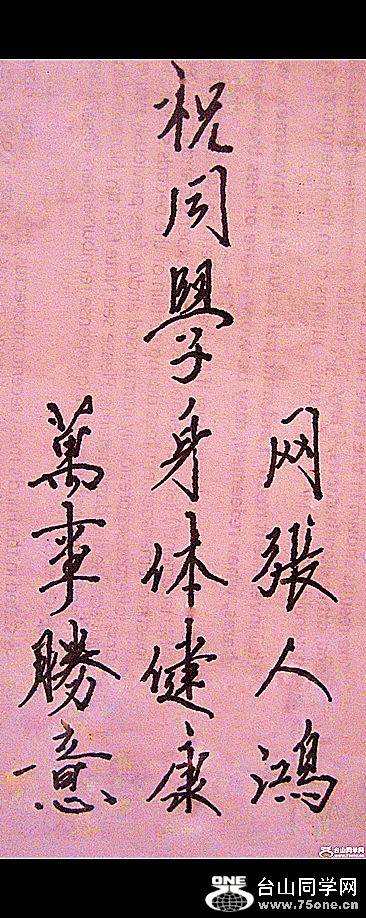 网張人鴻
祝同學身体健康
萬事勝意
台山同学网
www.75one.cn
ONE
台山同学网
www.75one.cn